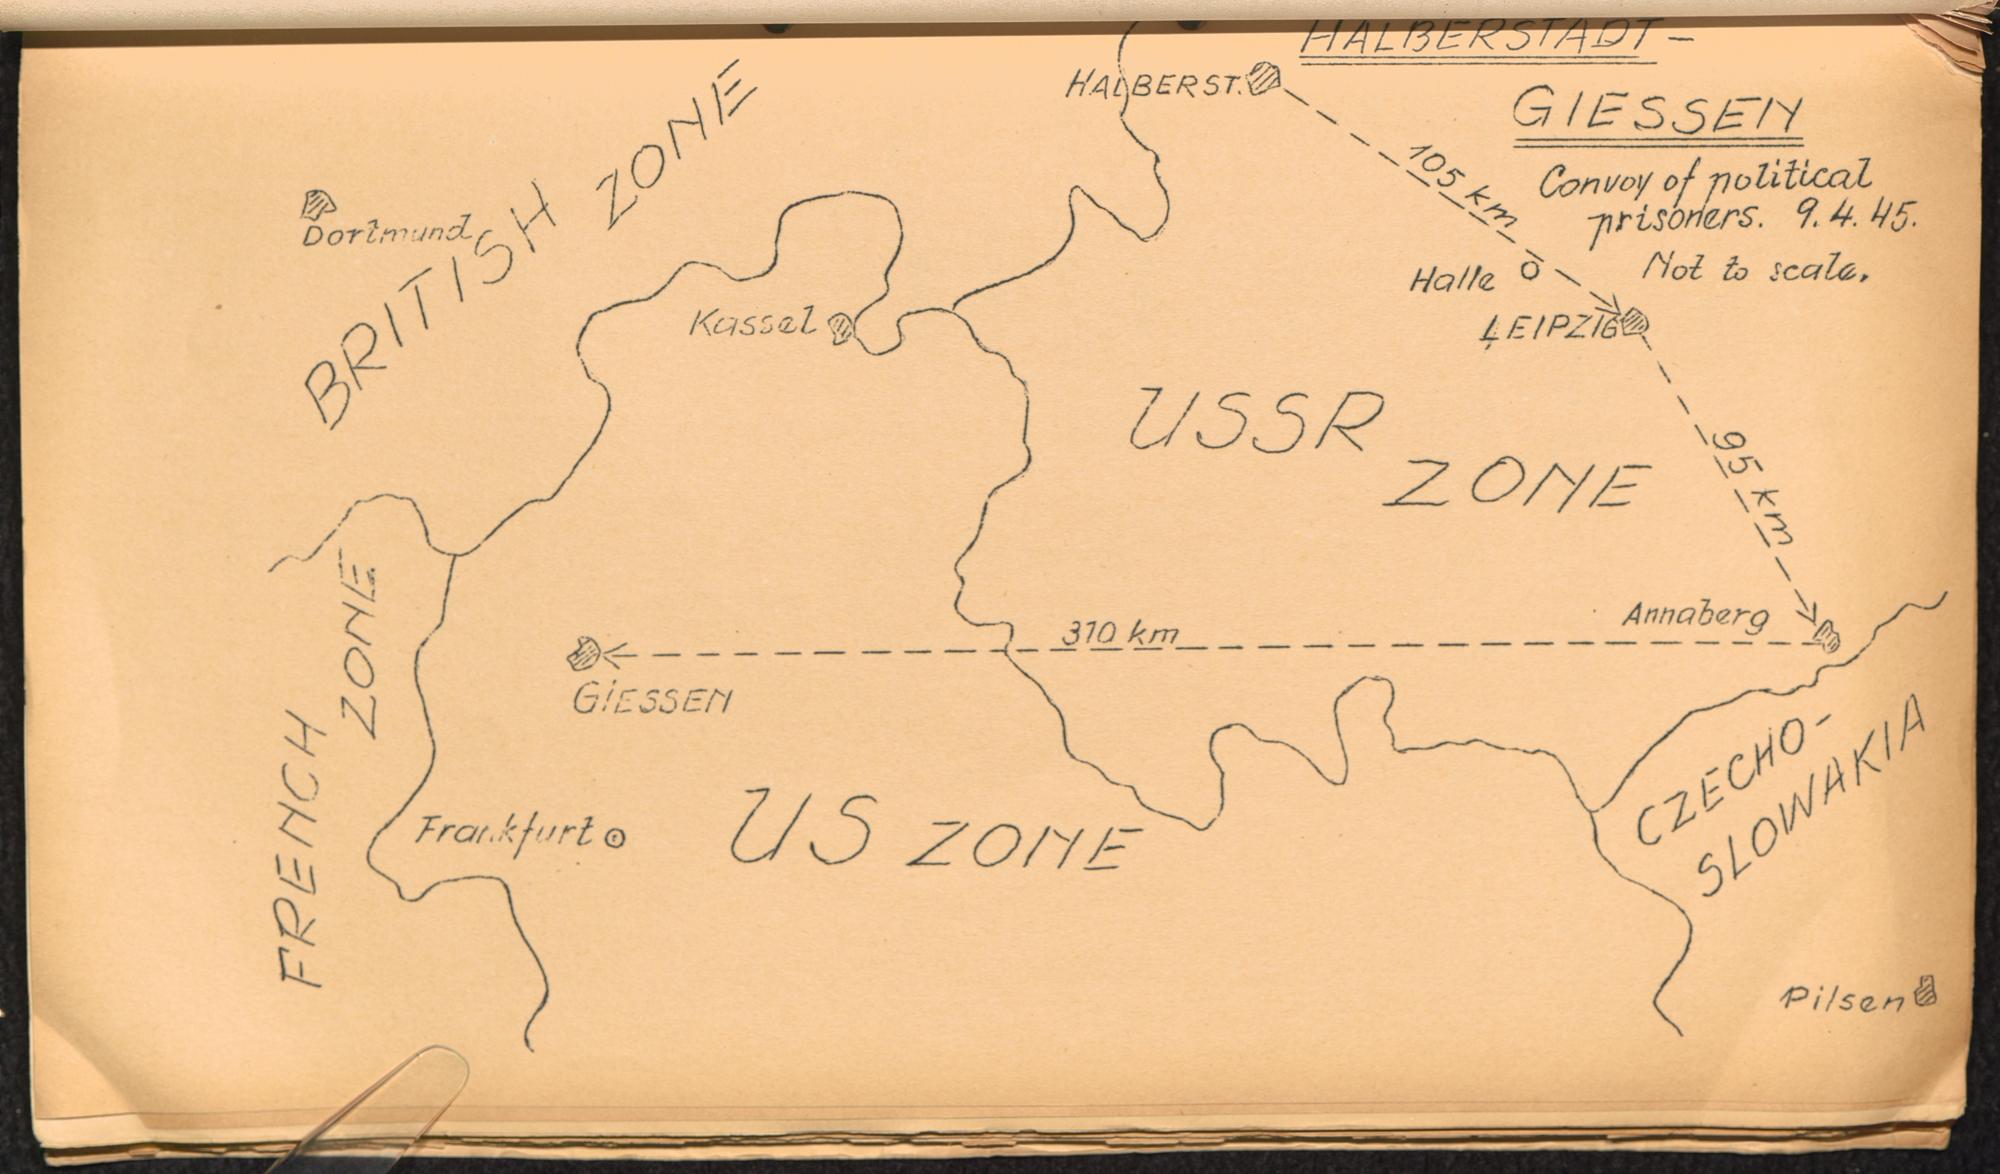 HALBERSTADT –
GIESSEN
Convoy of political
prisoners. 9.4.45.
Not to scale.
HALBERST.
105 km
Halle
LEIPZIG
95 km
Annaberg
310 km
GIESSEN
Dortmund
BRITISH ZONE
Kassel
USSR
ZONE
FRENCH
ZONE
Frankfurt
US ZONE
CZECHO-
SLOWAKIA
Pilsen